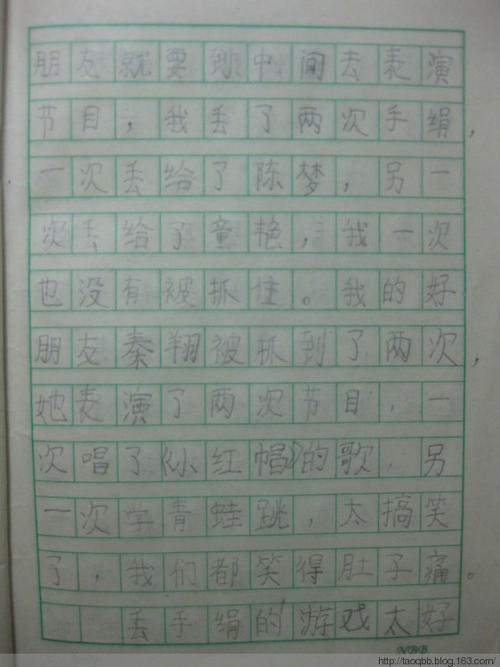 朋友就要到中间去表演
节目，我丢了两次手绢，
一次丢给了陈梦，另一
次丢给了童艳，我一次
也没有被抓住。我的好
朋友秦翔被抓到了两次，
她表演了两次节目，一
次唱了《小红帽》的歌，另
一次学青蛙跳，太搞笑
了，我们都笑得肚子痛。
丢手绢的游戏太好
http://taoqbb.blog.163.com/